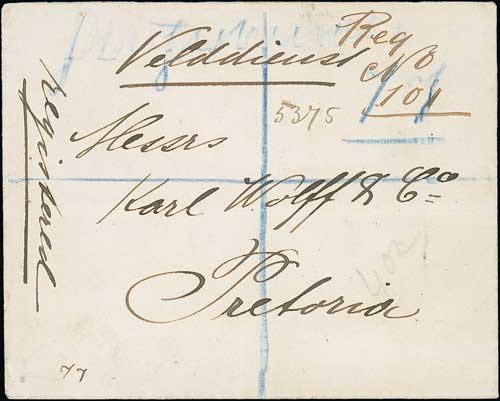 Velddienst
Reg
No
101
5375
Messrs
Karl Wolff & Co
Pretoria
Registered
77